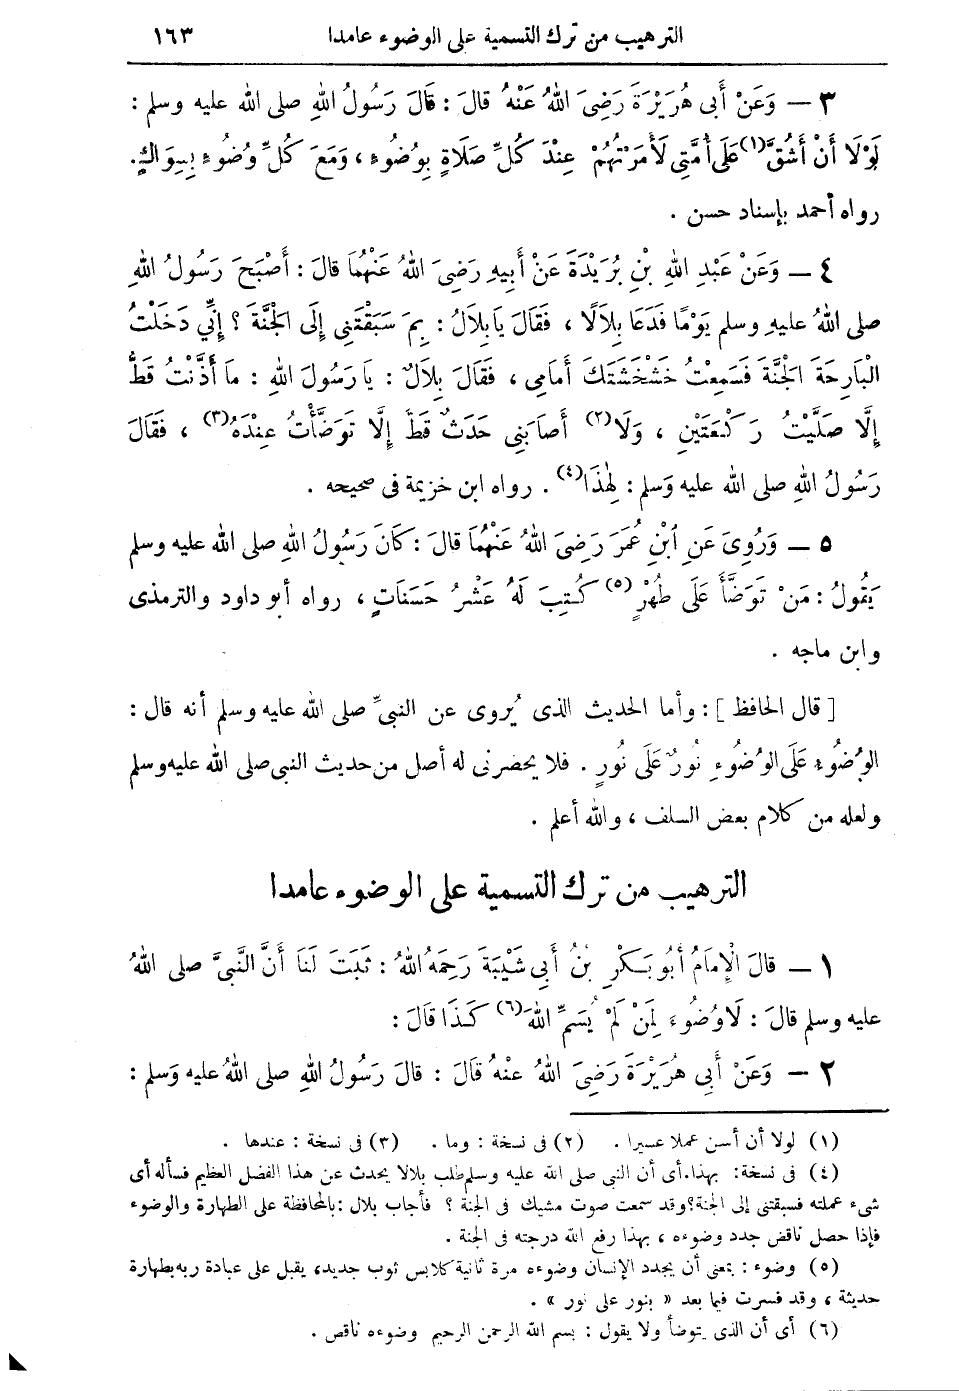 الترهيب من ترك التسمية على الوضوء عامدا ١٦٣
٣ — وَعَنْ أَبِى هُرَيْرَةَ رَضِىَ اللهُ عَنْهُ قالَ : قَالَ رَسُولُ اللهِ صلى الله عليه وسلم :
لَوْلَا أَنْ أَشُقَّ(١) عَلَى أُمَّتِى لَأَمَرْتهُمْ عِنْدَ كُلِّ صَلَاةٍ بِوُضُوءٍ ، وَمَعَ كُلِّ وُضُوءٍ بِسِوَاكٍ .
رواه أحمد بإسناد حسن .
٤ — وَعَنْ عَبْدِ اللهِ بْنِ بُرَيْدَةَ عَنْ أَبِيهِ رَضِىَ اللهُ عَنْهُمَا قالَ : أَصْبَحَ رَسُولُ اللهِ
صلى اللهُ عليهِ وسلم يَوْمًا فَدَعَا بِلَالًا ، فَقَالَ يَا بِلَالُ : بِمَ سَبَقْتَنِى إِلَى الْجَنَّةَ ؟ إِنِّي دَخَلْتُ
الْبَارِحَةَ الْجَنَّةَ فَسَمِعْتُ خَشْخَشَتَكَ أَمَامِى ، فَقَالَ بِلَالٌ : يَا رَسُولَ اللهِ : مَا أَذَّنْتُ قَطُّ
إِلَّا صَلَّيْتُ رَكْعَتَيْنِ ، وَلَا(٢) أَصابَنِى حَدَثٌ قَطُّ إِلَّا تَوَضَّأْتُ عِنْدَهُ(٣) ، فَقَالَ
رَسُولُ اللهِ صلى الله عليه وَسلم : لِهٰذَا(٤) . رواه ابن خزيمة فى صحيحه .
٥ — وَرُوِىَ عَنِ ابْنِ عُمَرَ رَضِىَ اللهُ عَنْهُمَا قالَ : كَانَ رَسُولُ اللهِ صلى الله عليه وسلم
يَقُولُ : مَنْ تَوَضَّأَ عَلَى طُهْرٍ(٥) كُتِبَ لَهُ عَشْرُ حَسَنَاتٍ ، رواه أبو داود والترمذى
وابن ماجه .
[ قال الحافظ ] : وأما الحديث الذى يُروى عن النبىِّ صلى الله عليه وسلم أنه قال :
الْوُضُوءُ عَلَى الْوُضُوءِ نُورٌ عَلَى نُورٍ . فلا يحضرنى له أصل من حديث النبى صلى الله عليه وسلم
ولعله من كلام بعض السلف ، والله أعلم .
الترهيب من ترك التسمية على الوضوء عامدا
١ — قالَ الْإِمَامُ أَبُو بَكْرِ بْنُ أَبِى شَيْبَةَ رَحِمَهُ اللهُ : ثَبَتَ لَنَا أَنَّ النَّبِىَّ صلى اللهُ
عليه وسلم قالَ : لَا وُضُوءَ لِمَنْ لَمْ يُسَمِّ اللهَ(٦) كَذَا قَالَ :
٢ — وَعَنْ أَبِى هُرَيْرَةَ رَضِىَ اللهُ عنْهُ قَالَ : قالَ رَسُولُ اللهِ صلى اللهُ عليه وَسلم :
(١) لولا أن أسن عملا عسيرا . (٢) فى نسخة : وما . (٣) فى نسخة : عندها .
(٤) فى نسخة: بهذا. أى أن النبى صلى الله عليه وسلم طلب بلالا يحدث عن هذا الفضل العظيم فسأله أى
شىء عملته فسبقتنى إلى الجنة؟ وقد سمعت صوت مشيك فى الجنة ؟ فأجاب بلال : بالمحافظة على الطهارة والوضوء
فإذا حصل ناقض جدد وضوءه ، بهذا رفع الله درجته فى الجنة .
(٥) وضوء : بمعنى أن يجدد الإنسان وضوءه مرة ثانية كلابس ثوب جديد، يقبل على عبادة ربه بطهارة
حديثة ، وقد فسرت فيما بعد « بنور على نور » .
(٦) أى أن الذى يتوضأ ولا يقول : بسم الله الرحمن الرحيم وضوءه ناقص .